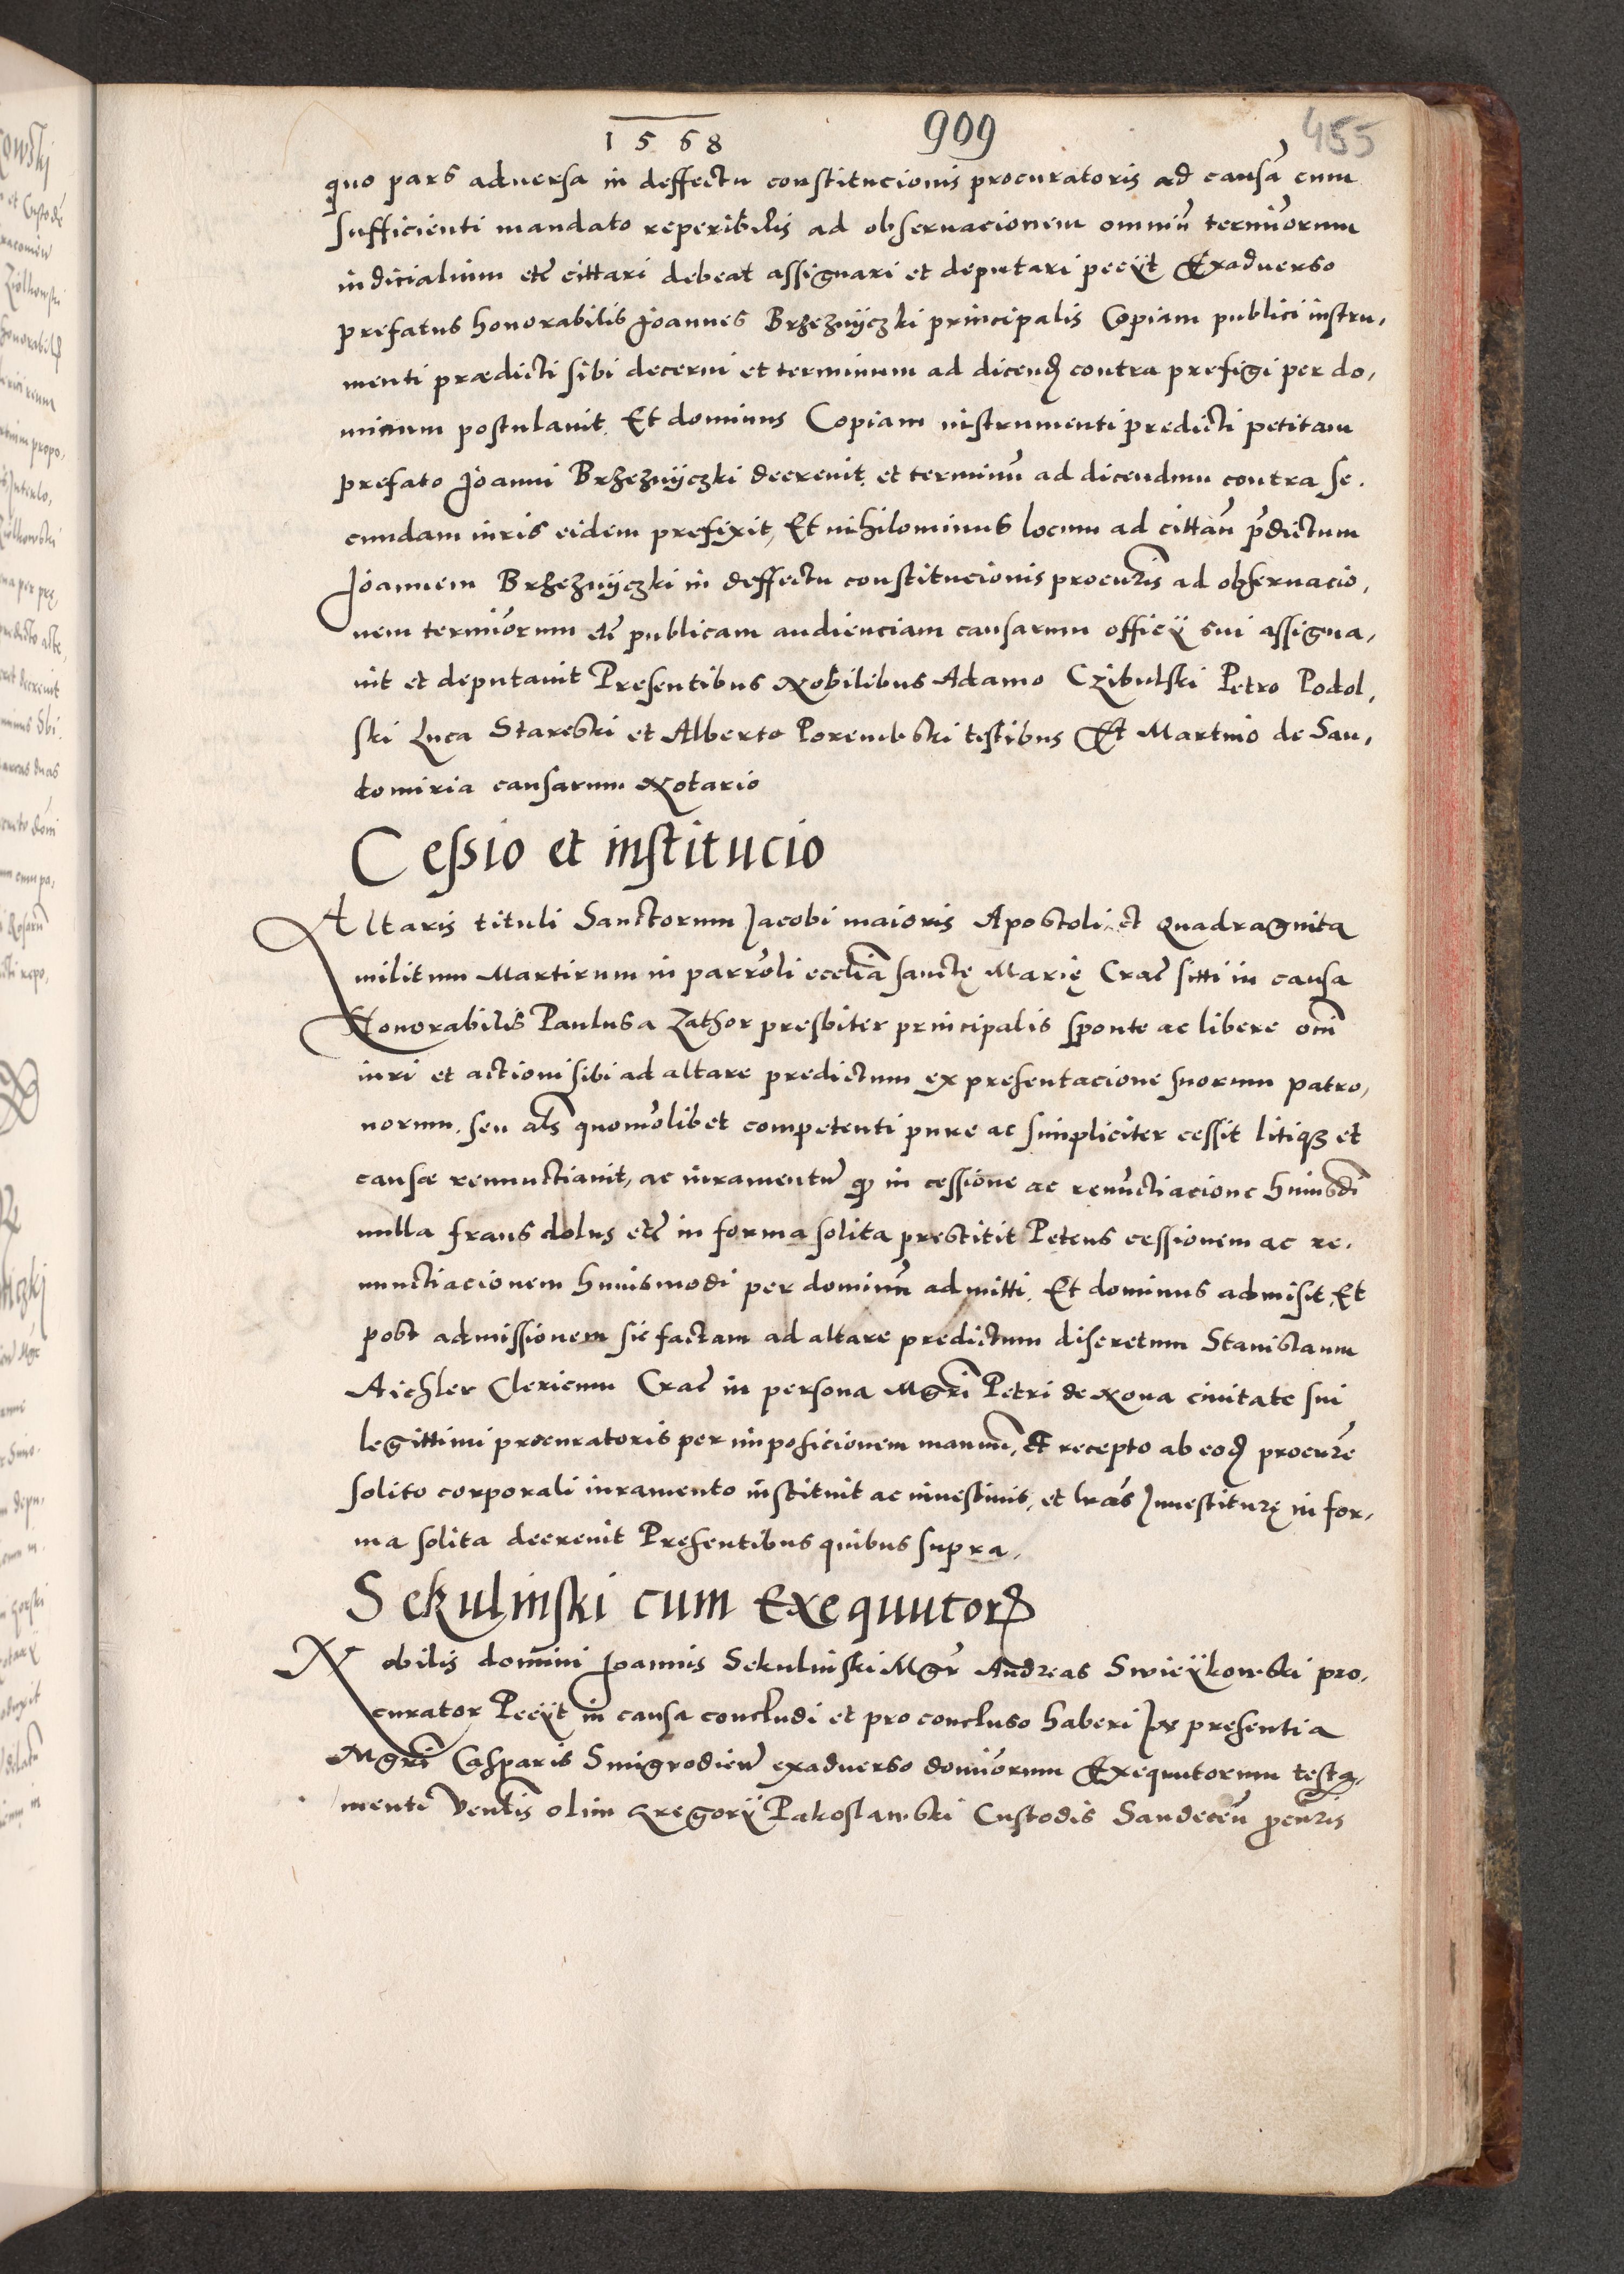 1568 909 455
quo pars aduersa in deffectu constitucionis procuratoris ad causã cum
sufficienti mandato reperibilis ad obseruacionem omniũ terminorum
iudicialium etc̃ cittari debeat assignari et deputari peciit Exaduerso
prefatus honorabilis Joannes Brzeznyczki principalis Copiam publici instru,
menti prædicti sibi decerni et terminum ad dicend contra prefigi per do,
minum postulauit. Et dominus Copiam instrumenti predicti petitam
prefato Joanni Brzeznyczki decreuit, et terminũ ad dicendum contra se.
cundam iuris eidem prefixit, Et nihilominus locum ad cittan̄ p̄dictum
Joannem Brzeznyczki in deffectu constitucionis procur̃is ad obseruacio,
nem termĩorum etc̃ publicam audienciam causarum officij sui assigna,
uit et deputauit Presentibus Nobilibus Adamo Czibulski Petro Podol,
ski Luca Stareski et Alberto Porembski testibus Et Martino de San,
domiria causarum Notario
Cessio et institucio
Altaris tituli Sanctorum Jacobi maioris Apostoli, et Quadraginta
militum Martirum in parr̃oli eccl̃ia sanctę Marię Crac̃ siti in causa
Honorabilis Paulus a Zathor presbiter principalis sponte ac libere om̃i
iuri et actioni sibi ad altare predictum ex presentacione suorum patro,
norum, seu al̃s quomõlibet competenti pure ac simpliciter cessit litiq3 et
causæ renunctiauit, ac iuramentũ q in cessione ac renũctiacione huiusd̃i
nulla fraus dolus etc̃ in forma solita prestitit Petens cessionem ac re.
nunctiacionem huiusmodi per dominũ admitti. Et dominus admisit, Et
post admissionem sic factam ad altare predictum discretum Stanislaum
Aichler Clericum Crac̃ in persona Mgr̃i Petri de Noua ciuitate sui
legittimi procuratoris per imposicionem manuũ, et recepto ab eod procur̃e
solito corporali iuramento instituit ac inuestiuit, et lr̃as Inuestiturę in for,
ma solita decreuit Presentibus quibus supra.
Sekulinski cum Exequutor
Nobilis domini Joannis Sekulinski Mgr̃ Andreas Swieykowski pro,
curator Peciit in causa concludi et pro concluso haberi In presentia
Mgr̃i Casparis Smigrodien̄ exaduerso domĩorum Exequutorum testa,
menti Ven̄lis olim Gregorij Pakoslawski Custodis Sandecen̄ p̄cur̃is